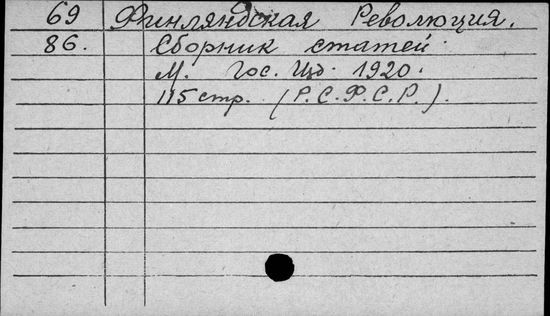 69 Финляндская Революция.
86. Сборник статей
М. Гос. Изд. 1920.
115 стр. (Р.С.Ф.С.Р.).